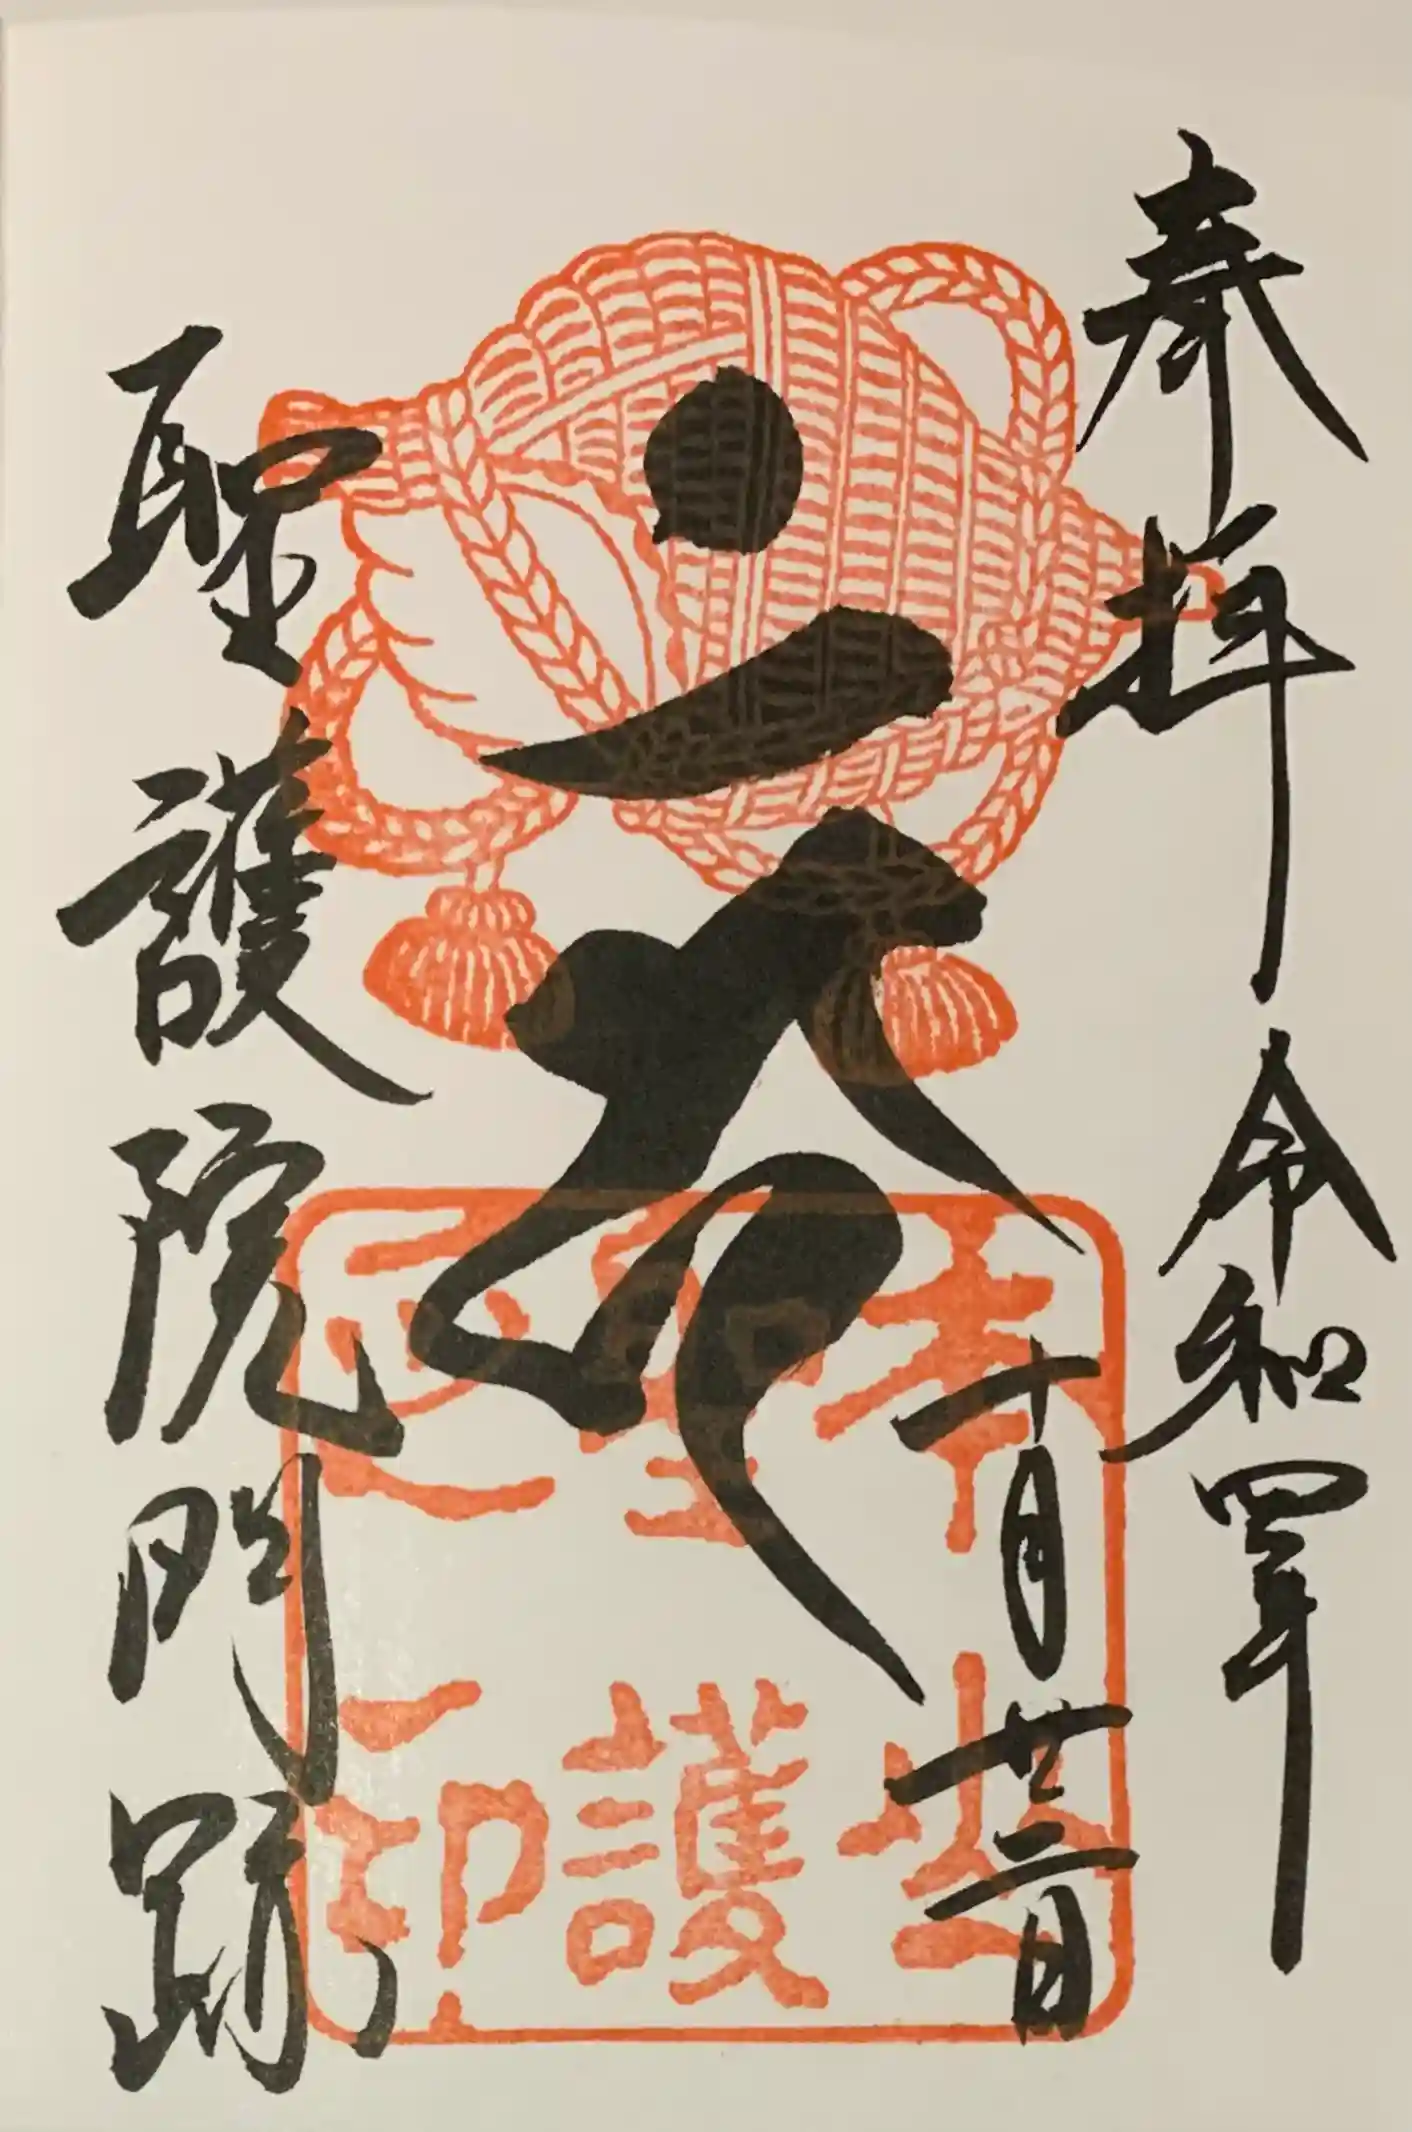 奉拝 令和四年
十月廿二日
聖護院門跡
本山
聖護
印